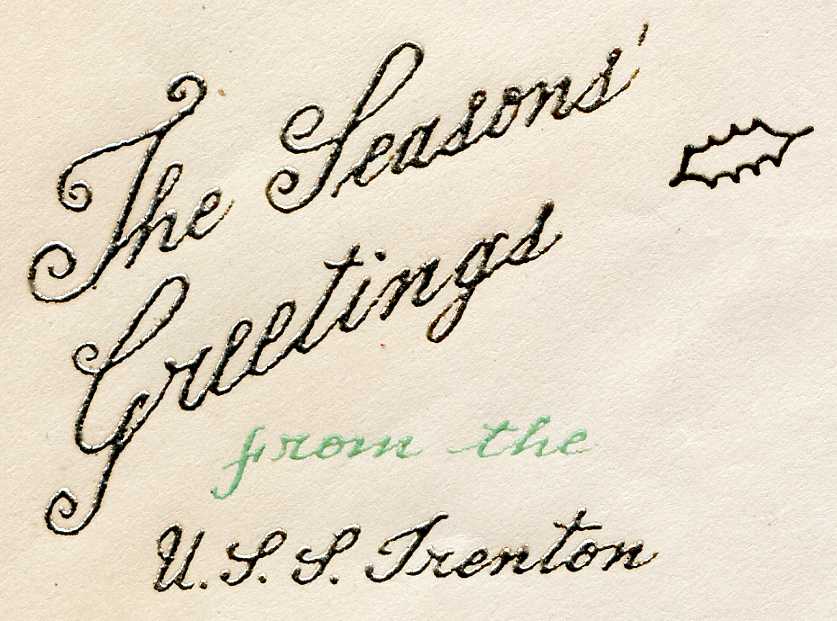 The Seasons'
Greetings
from the
U.S.S. Trenton